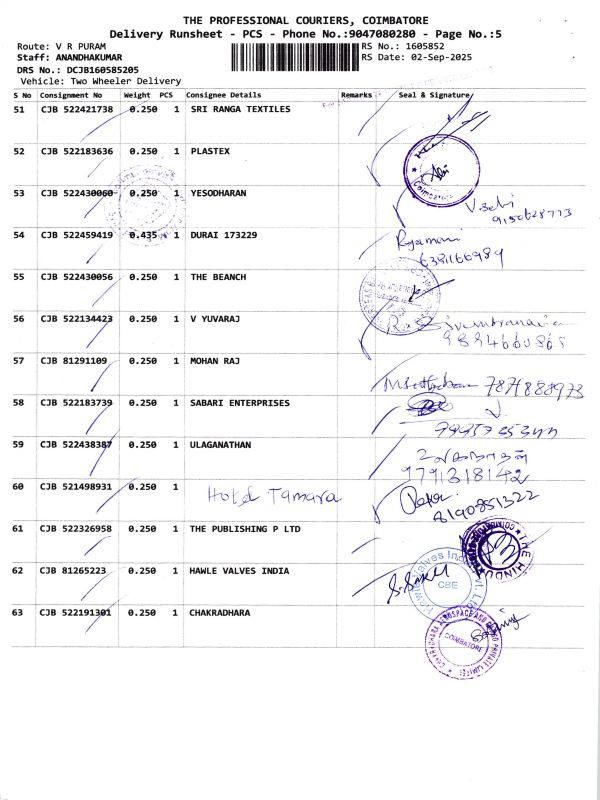 THE PROFESSIONAL COURIERS, COIMBATORE
Delivery Runsheet - PCS - Phone No.:9047080280 - Page No.:5
Route: V R PURAM
RS No.: 1605852
Staff: ANANDHAKUMAR
RS Date: 02-Sep-2025
DRS No.: DCJB160585205
Vehicle: Two Wheeler Delivery
S No Consignment No Weight PCS Consignee Details Remarks Seal & Signature
51 CJB 522421738 0.250 1 SRI RANGA TEXTILES
52 CJB 522183636 0.250 1 PLASTEX
Coimbatore
53 CJB 522430060 0.250 1 YESODHARAN
54 CJB 522459419 0.435 1 DURAI 173229
6381166989
55 CJB 522430056 0.250 1 THE BEANCH
56 CJB 522134423 0.250 1 V YUVARAJ
57 CJB 81291109 0.250 1 MOHAN RAJ
7871888973
58 CJB 522183739 0.250 1 SABARI ENTERPRISES
59 CJB 522438387 0.250 1 ULAGANATHAN
9791318142
60 CJB 521498931 0.250 1 Hotel Tamara
8190851322
61 CJB 522326958 0.250 1 THE PUBLISHING P LTD
THE HINDU
62 CJB 81265223 0.250 1 HAWLE VALVES INDIA
CBE
63 CJB 522191301 0.250 1 CHAKRADHARA
COIMBATORE